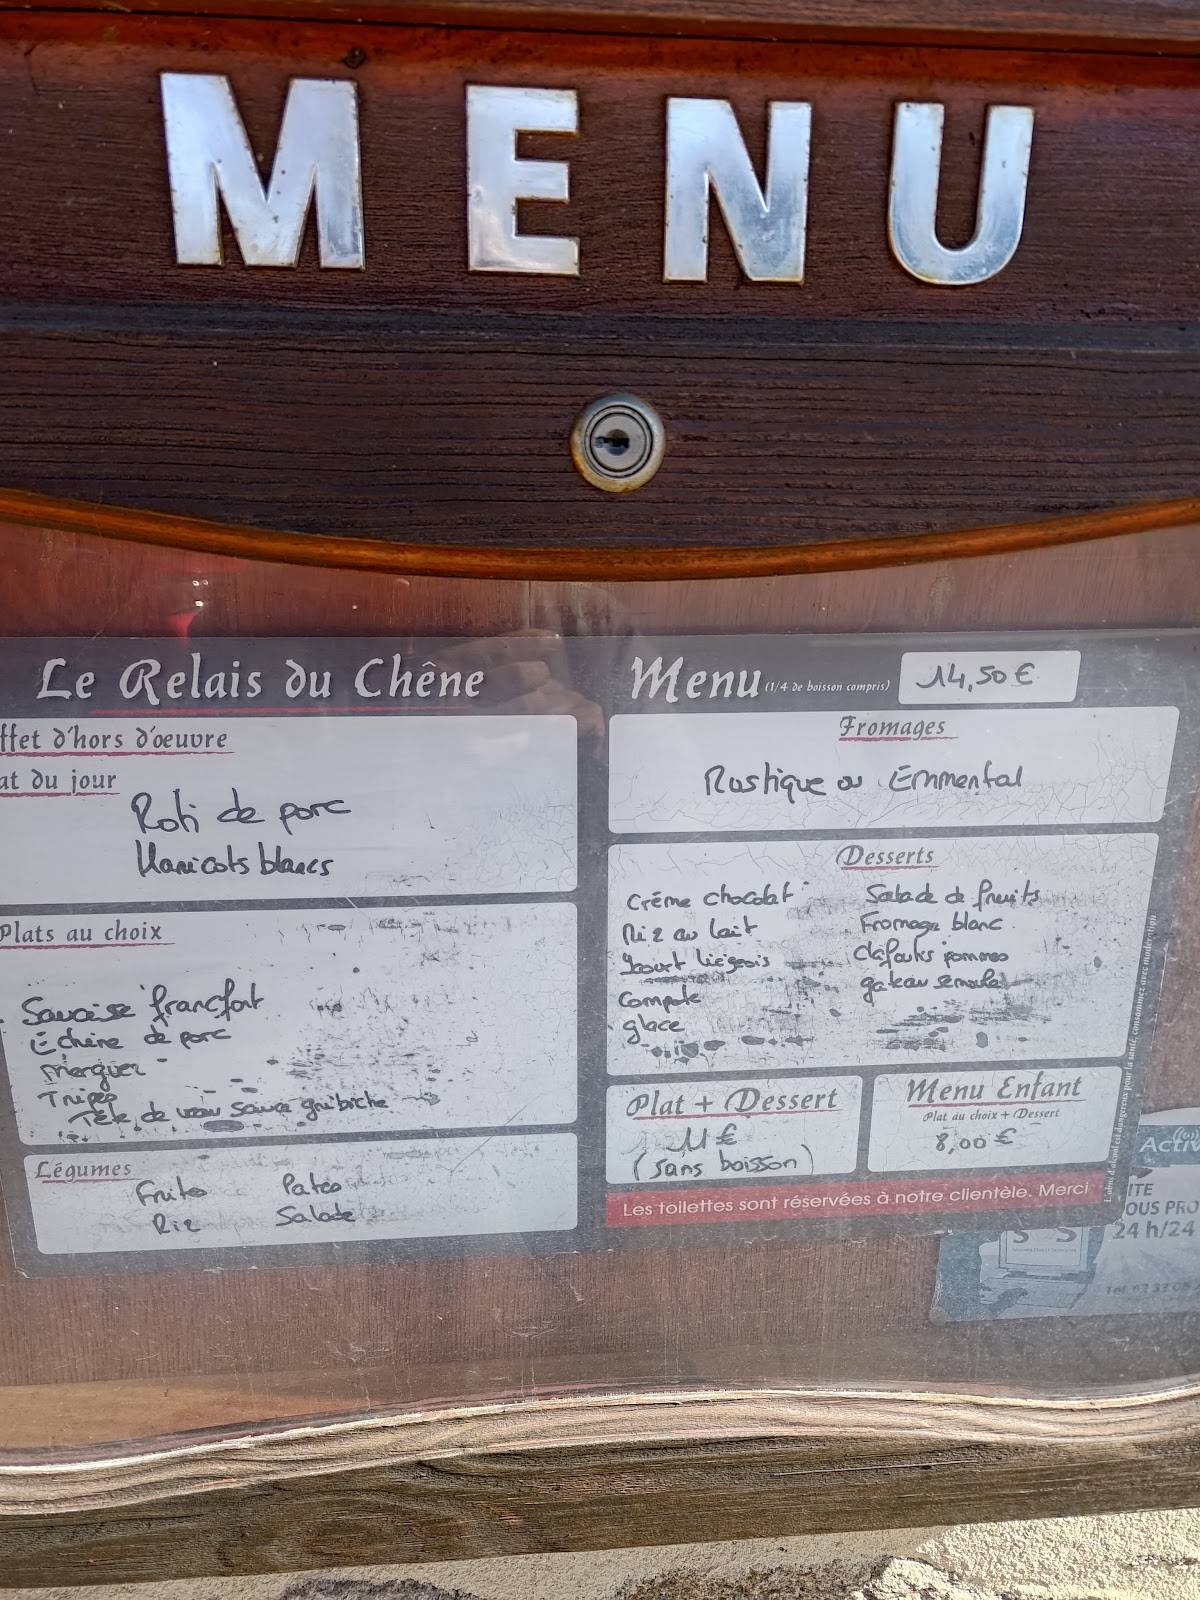 MENU
Le Relais du Chêne
ffet d'hors d'œuvre
at du jour
Roti de porc
Haricots blancs
Plats au choix
francfort
Echine de porc
merguez
Tripes
Tête de veau sauce gribiche
Légumes
Frites Pates
Riz Salade
Menu (1/4 de boisson compris) 14,50 €
Fromages
Rustique ou Emmental
Desserts
Crème chocolat Salade de fruits
Riz au lait Fromage blanc
Yaourt liégeois clafoutis pommes
Compote gateau semoule
glace
Plat + Dessert
11 €
(sans boisson)
Menu Enfant
Plat au choix + Dessert
8,00 €
Les toilettes sont réservées à notre clientèle. Merci
L'abus d'alcool est dangereux pour la santé, consommez avec modération
Activ
ITE
OUS PRO
24 h/24